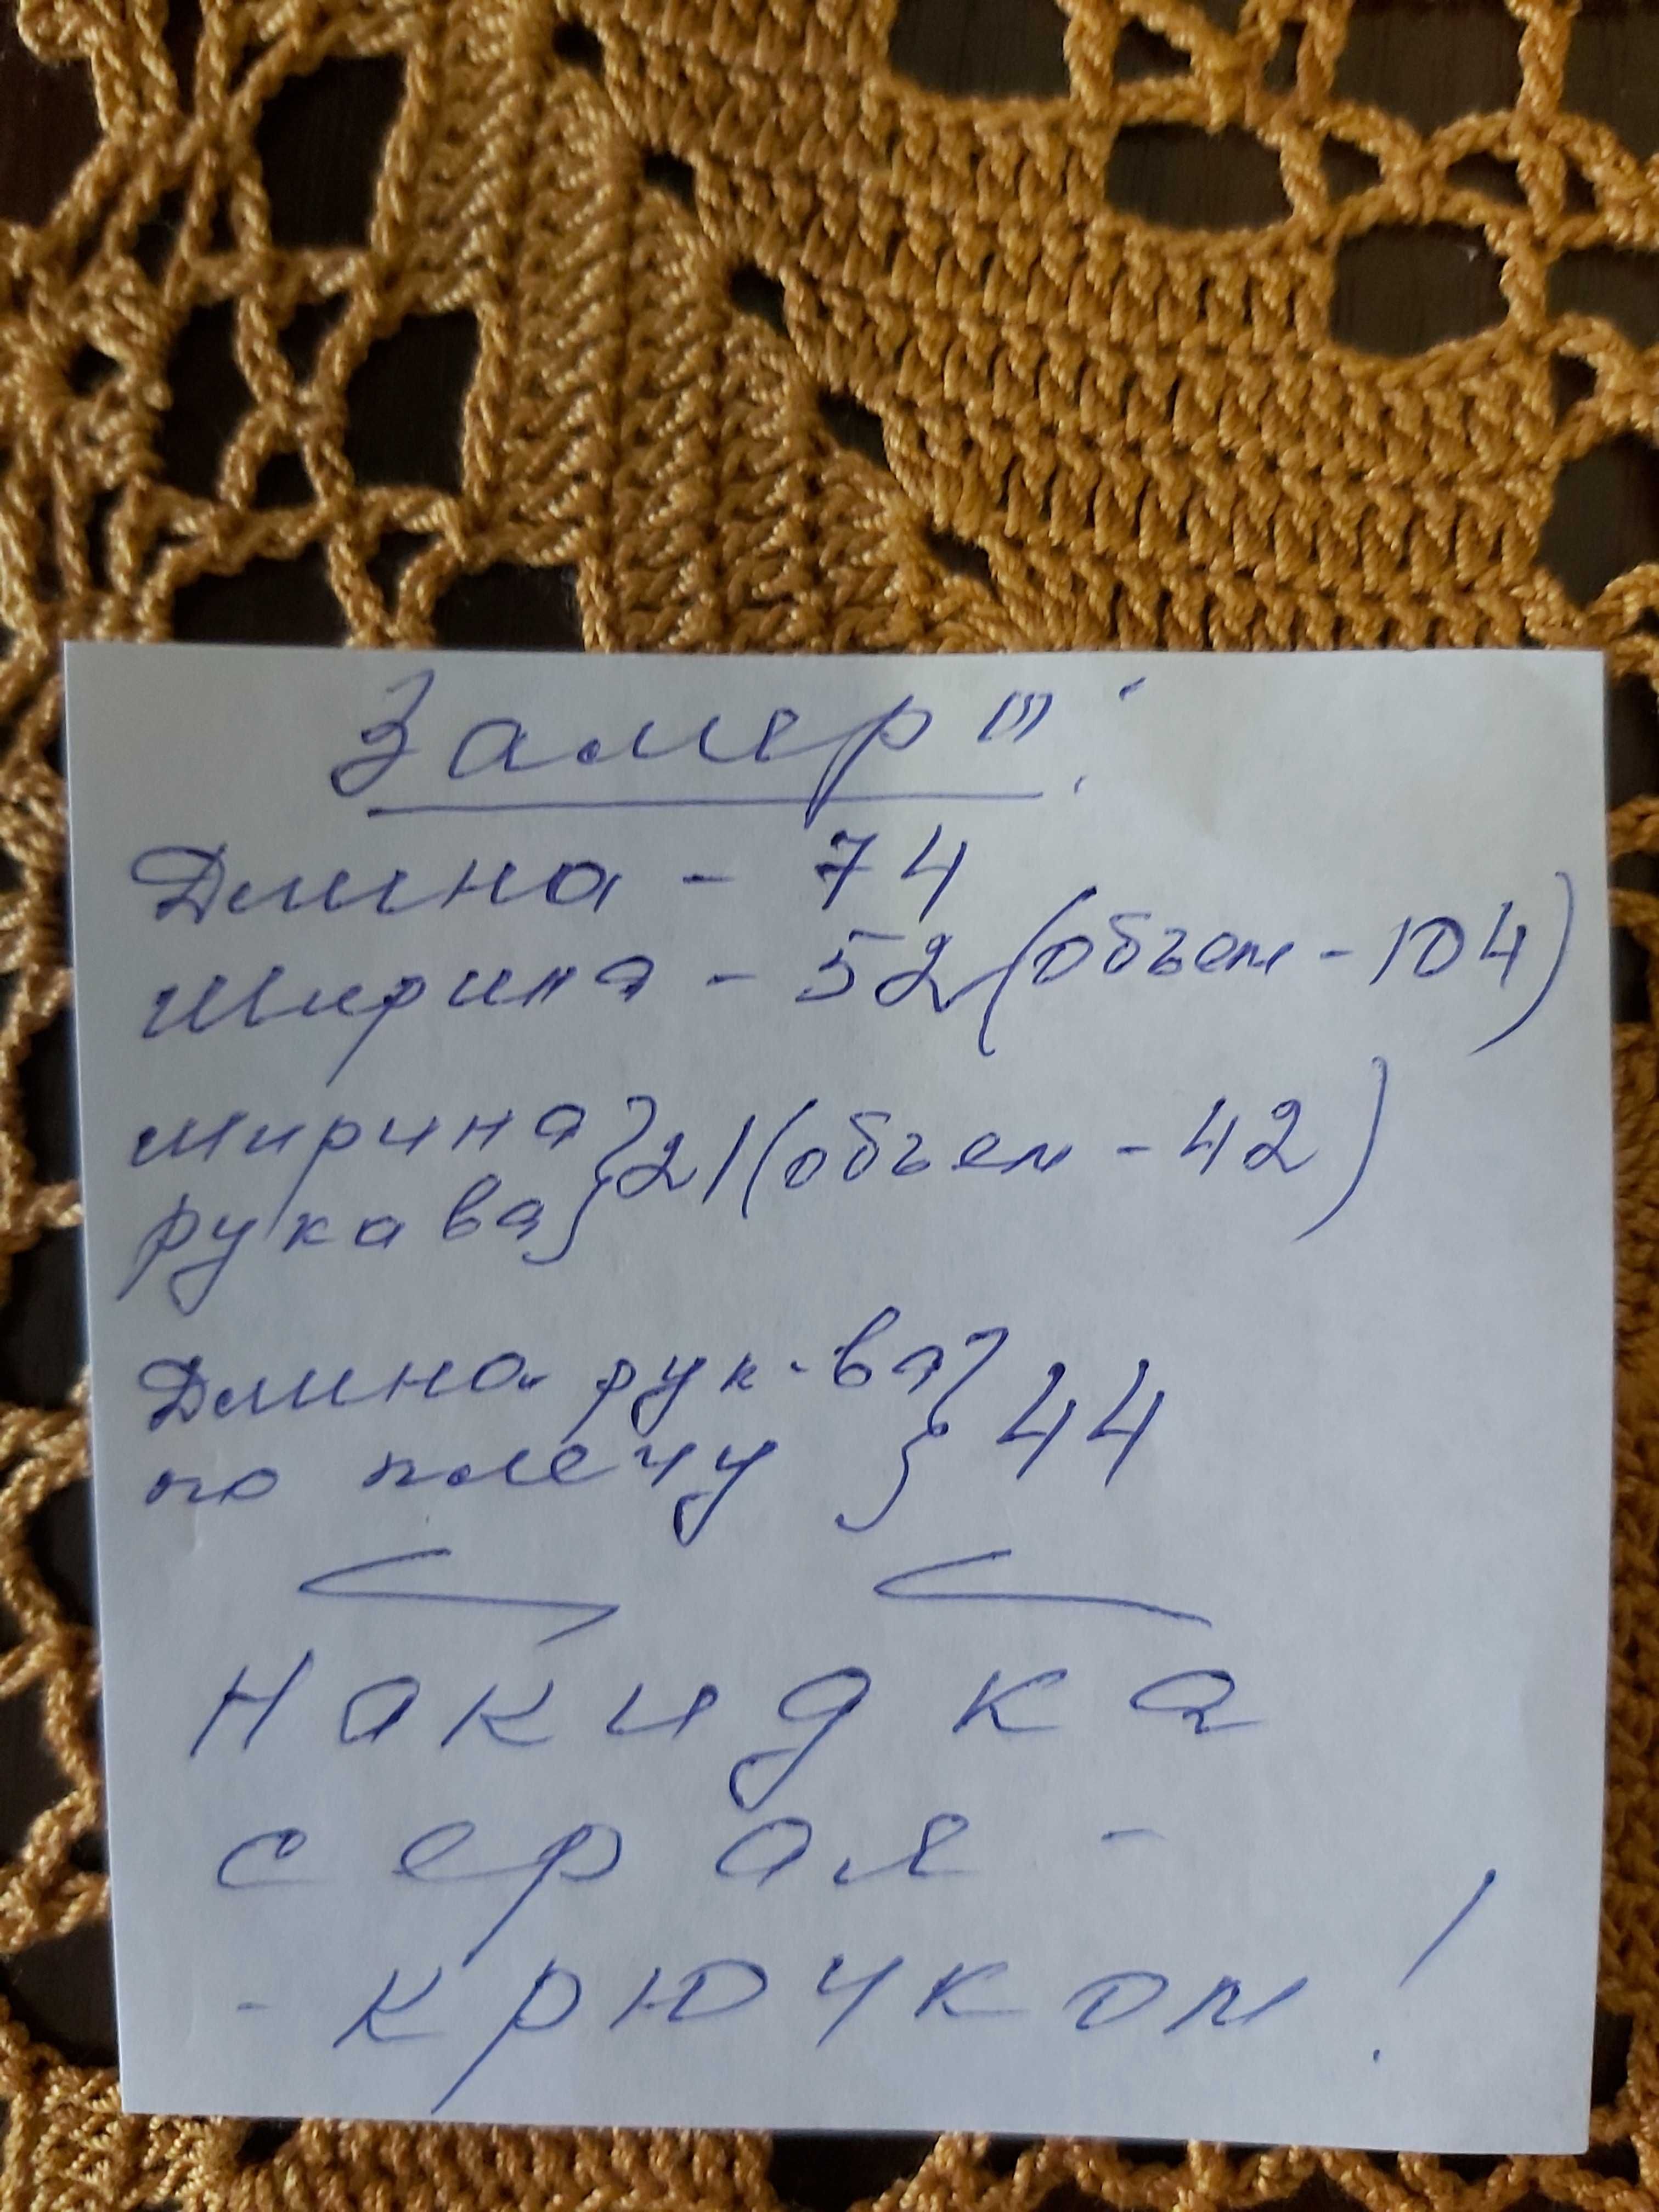 Замер "':
Длина - 74
Ширина - 52 (объем - 104)
ширина } 21 (объем - 42)
рукава
Длина рук-ва } 44
по плечу
Накидка
серая -
- крючком!